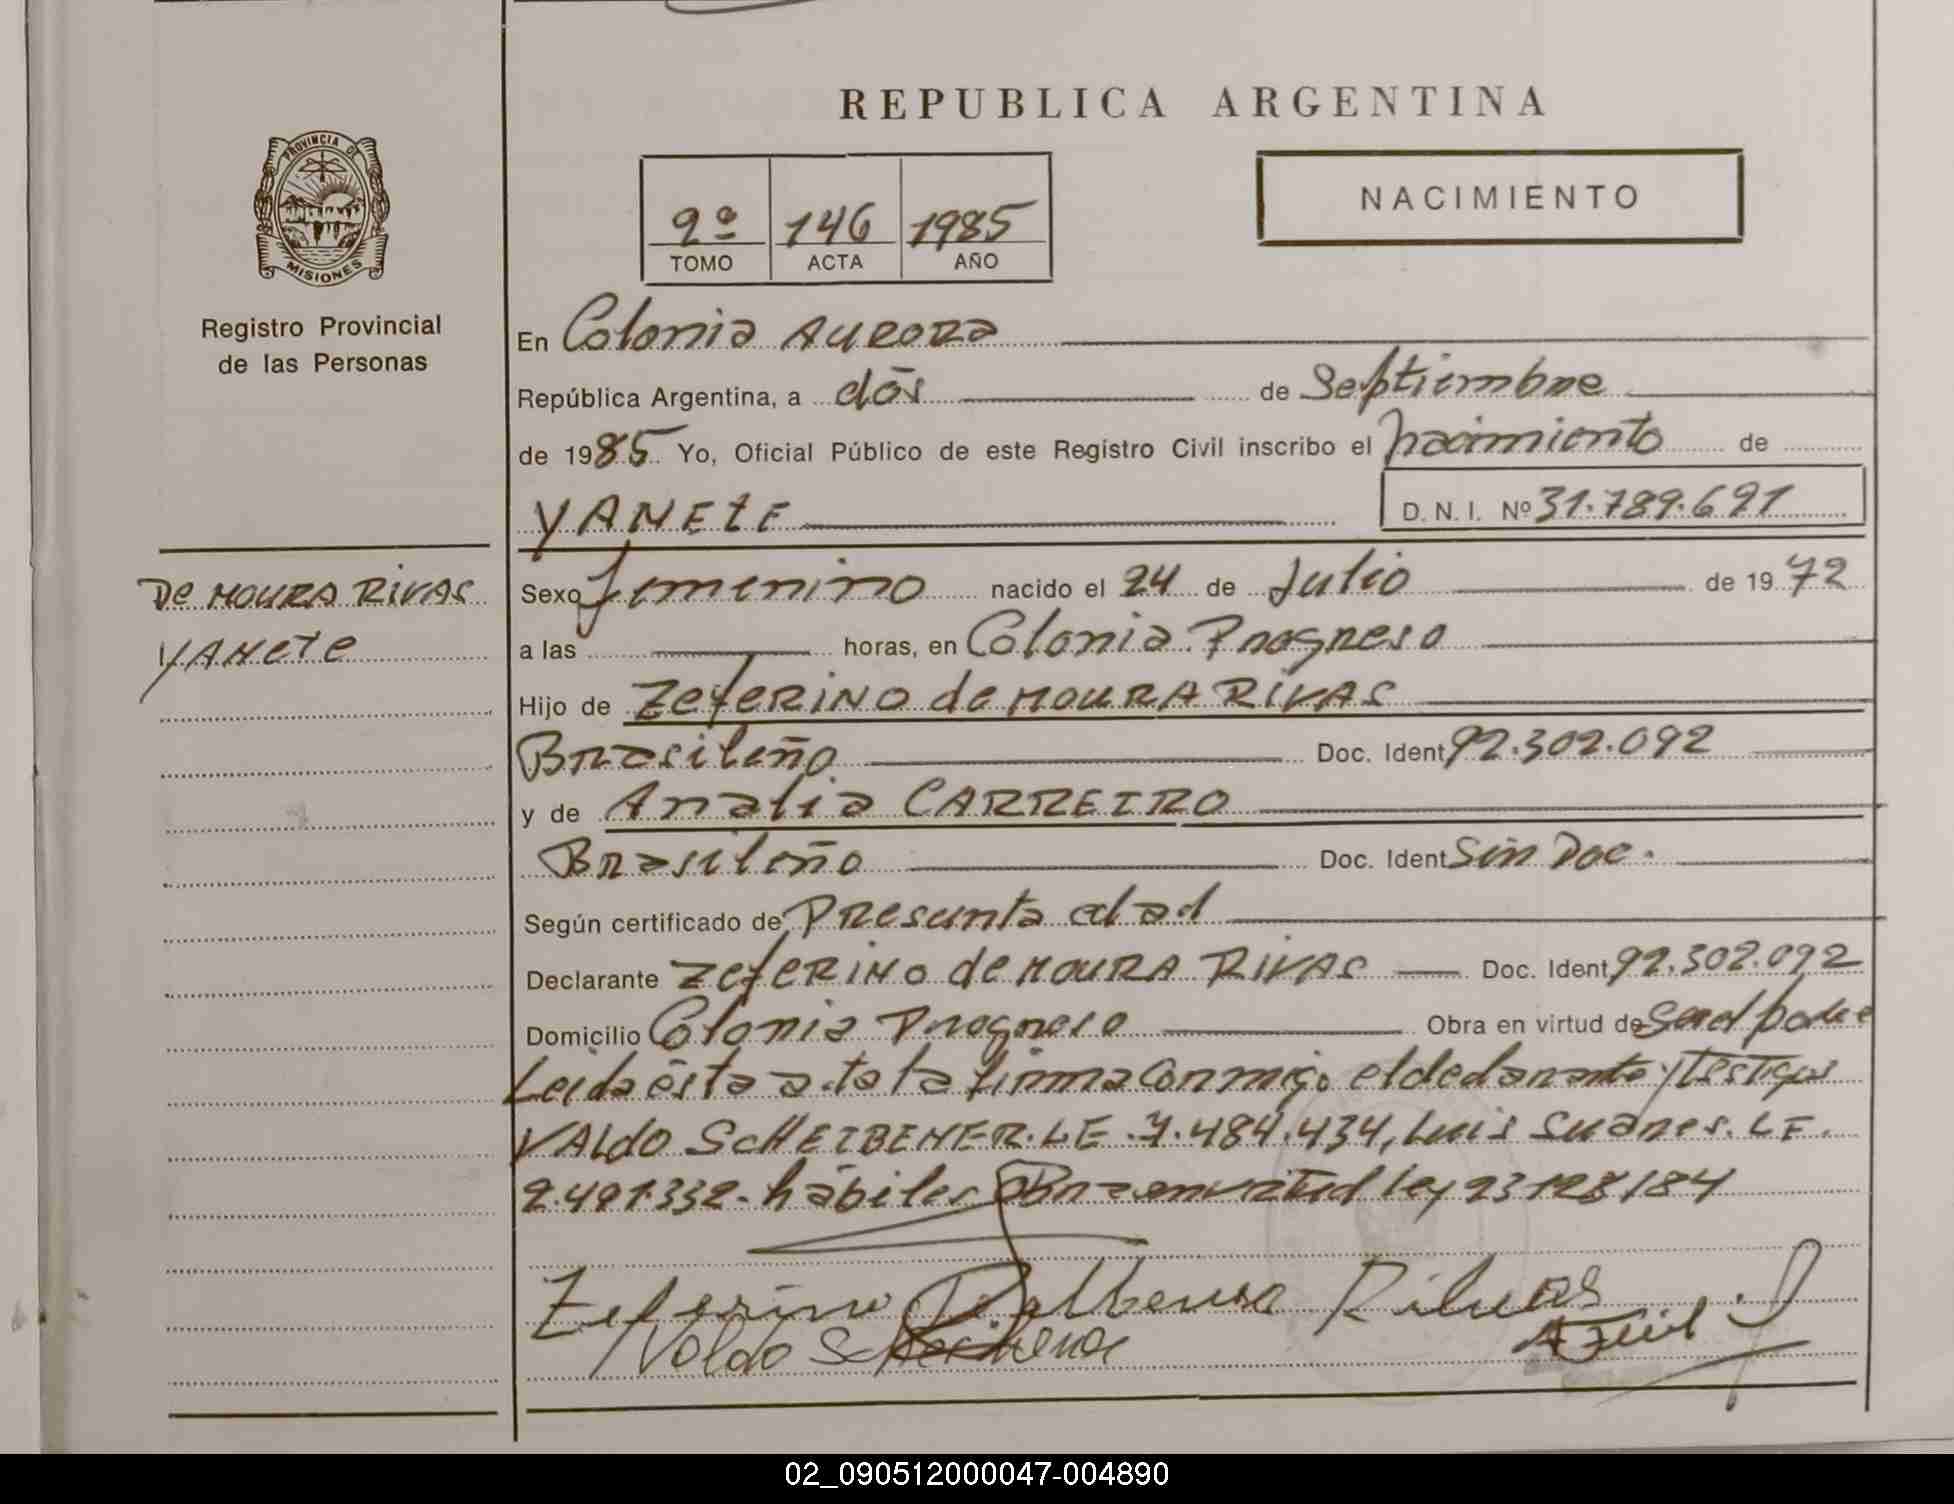 REPUBLICA ARGENTINA
PROVINCIA DE
MISIONES
Registro Provincial
de las Personas
2º 146 1985
TOMO ACTA AÑO
NACIMIENTO
En Colonia Aurora
República Argentina, a dós de Septiembre
de 1985 Yo, Oficial Público de este Registro Civil inscribo el nacimiento de
YANETE D. N. I. Nº 31.789.691
De MOURA RIVAS
YANETE
Sexo femenino nacido el 24 de Julio de 1972
a las horas, en Colonia Progreso
Hijo de ZEFERINO de MOURA RIVAS
Brasileño Doc. Ident 92.302.092
y de Analia CARREIRO
Brasileño Doc. Ident Sin Doc.
Según certificado de Presunta edad
Declarante ZEFERINO de MOURA RIVAS Doc. Ident 92.302.092
Domicilio Colonia Progreso Obra en virtud de Ser el padre
Leida ésta acta la firma conmigo el declarante y Testigos
VALDO SCHEIBENER. LE. 7.484.434, Luis Suares. LE.
2.491.332- hábiles Obra en virtud ley 23128/84
Zeferino Rivas
Valdo
02_090512000047-004890